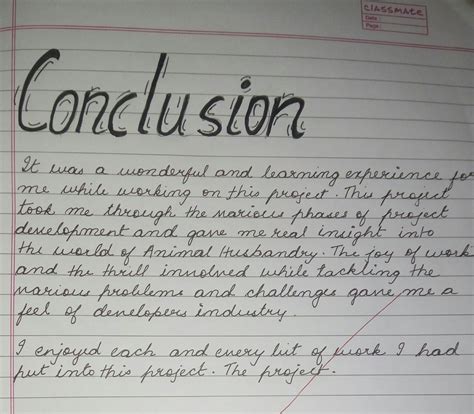 CLASSMATE
Date :
Page :
Conclusion
It was a wonderful and learning experience for
me while working on this project. This project
took me through the various phases of project
development and gave me real insight into
the world of Animal Husbandry. The joy of work
and the thrill involved while tackling the
various problems and challenges gave me a
feel of developers industry.
I enjoyed each and every bit of work I had
put into this project. The project.